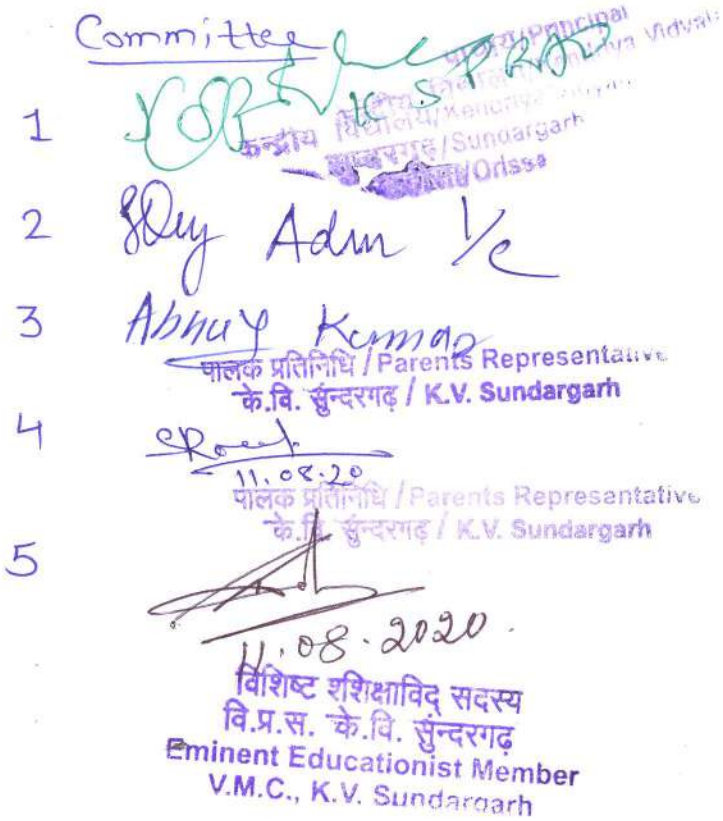 Committee
प्राचार्य/Principal
1 K S PRAD
केन्द्रीय विद्यालय/Kendriya Vidyalaya
सुन्दरगढ़/Sundargarh
Orissa
2 SDey Adm I/c
3 Abhay Kumar
पालक प्रतिनिधि / Parents Representative
के.वि. सुंन्दरगढ़ / K.V. Sundargarh
4
11.08.20
पालक प्रतिनिधि / Parents Representative
के.वि. सुंन्दरगढ़ / K.V. Sundargarh
5
11.08.2020.
विशिष्ट शशिक्षाविद् सदस्य
वि.प्र.स. के.वि. सुंन्दरगढ़
Eminent Educationist Member
V.M.C., K.V. Sundargarh